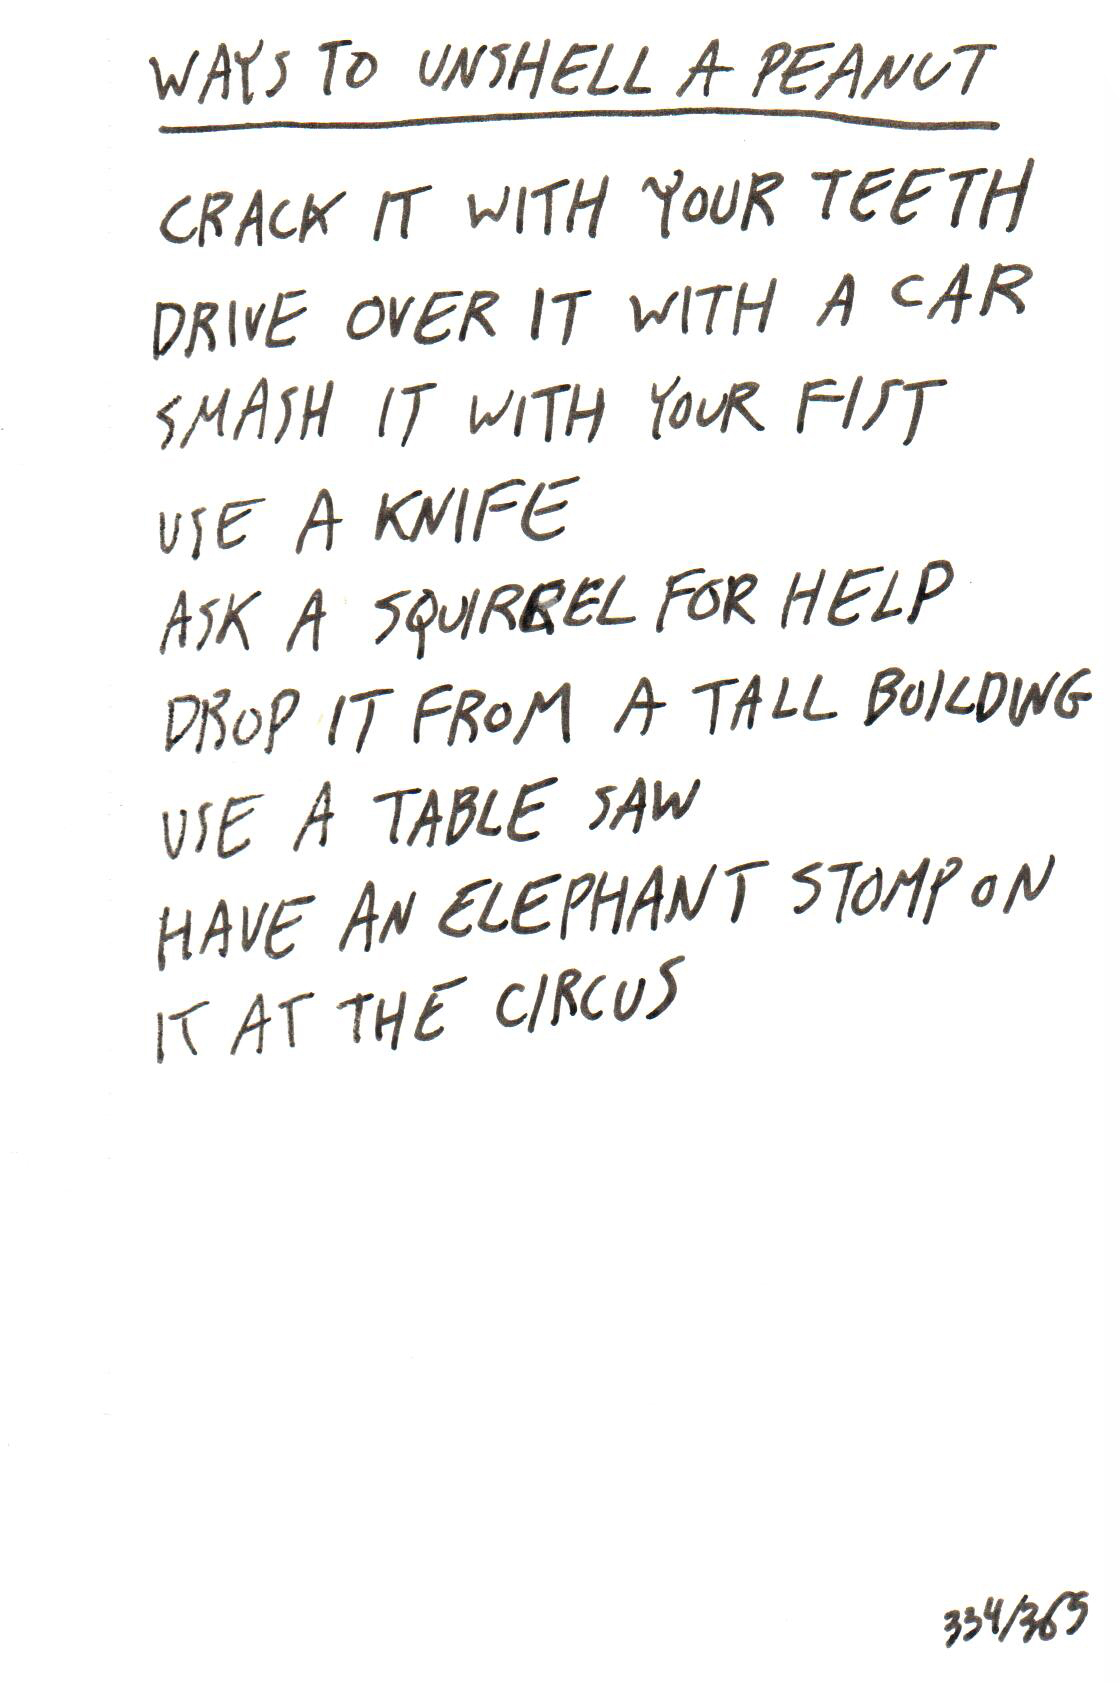 WAYS TO UNSHELL A PEANUT
CRACK IT WITH YOUR TEETH
DRIVE OVER IT WITH A CAR
SMASH IT WITH YOUR FIST
USE A KNIFE
ASK A SQUIRREL FOR HELP
DROP IT FROM A TALL BUILDING
USE A TABLE SAW
HAVE AN ELEPHANT STOMP ON
IT AT THE CIRCUS
334/365